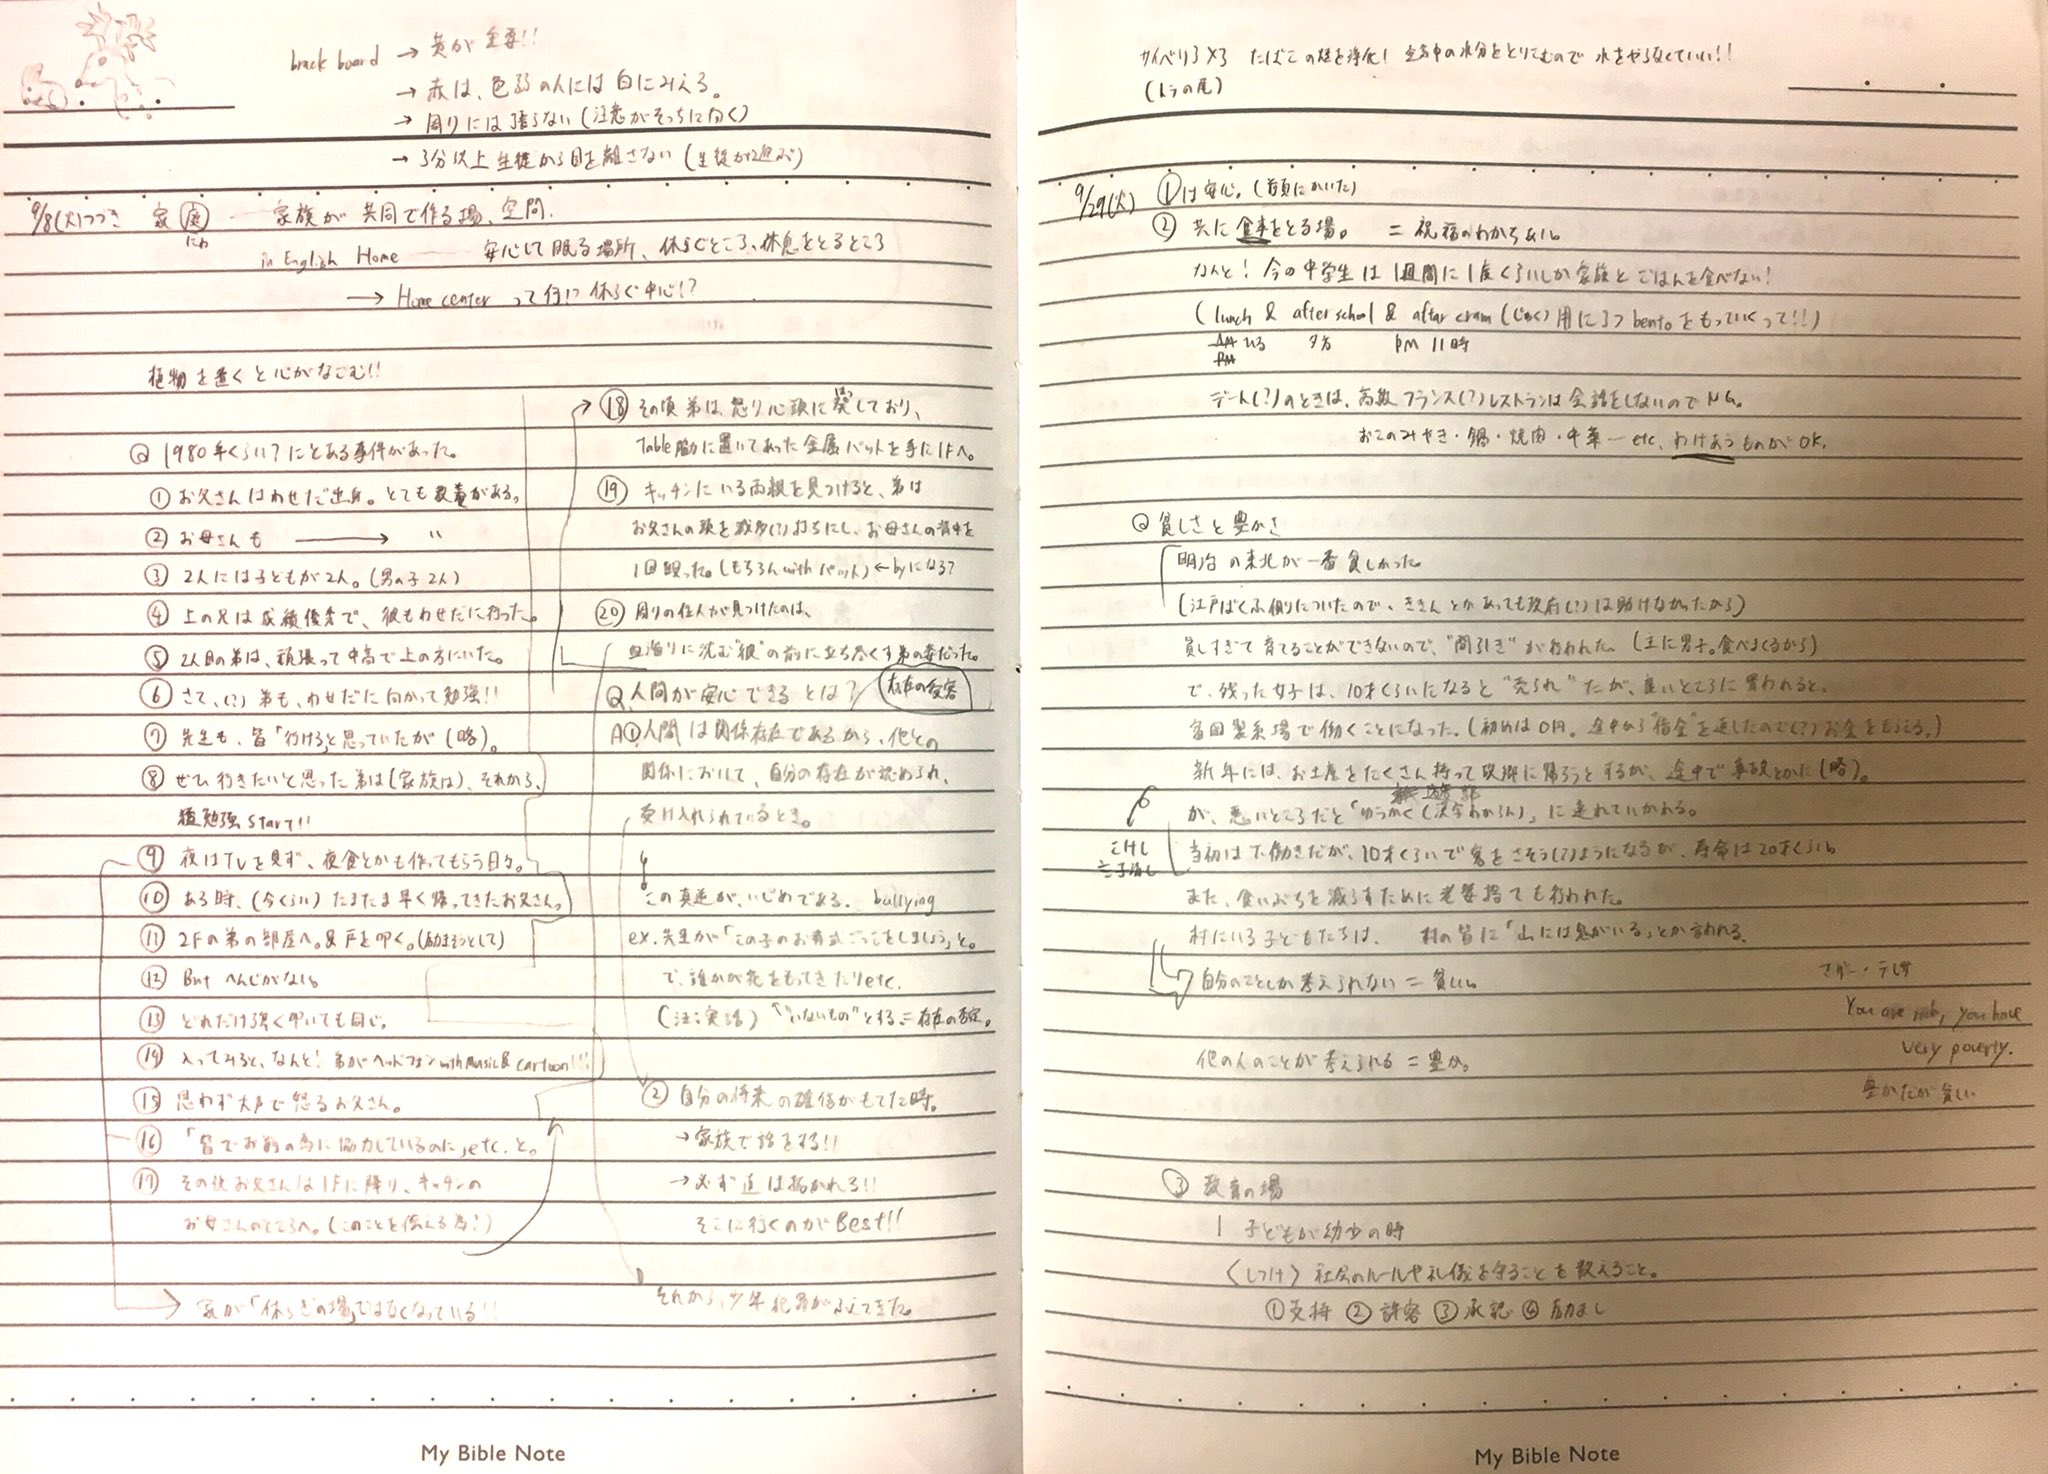 brack board → 黄が重要!!
→ 赤は、色弱の人には白にみえる。
→ 周りには張らない(注意がそっちに向く)
→ 3分以上生徒から目を離さない(生徒が遊ぶ)
9/8(火)つづき 家庭 ― 家族が共同で作る場、空間.
にわ
in English Home ― 安心して眠る場所、休らぐところ、休息をとるところ
→ Home center って何!? 休らぐ中心!?
植物を置くと心がなごむ!!
Q 1980年くらい?にとある事件があった。
① お父さんはわせだ出身。とても教養がある。
② お母さんも → 〃
③ 2人には子どもが2人。(男の子2人)
④ 上の兄は成績優秀で、彼もわせだに行った。
⑤ 2人目の弟は、頑張って中高で上の方にいた。
⑥ さて、(?)弟も、わせだに向かって勉強!!
⑦ 先生も、皆「行ける」と思っていたが(略)。
⑧ ぜひ行きたいと思った弟は(家族は)、それから、
猛勉強start!!
⑨ 夜はTVを見ず、夜食とかも作ってもらう日々。
⑩ ある時、(今くらい)たまたま早く帰ってきたお父さん。
⑪ 2Fの弟の部屋へ。戸を叩く。(励まそうとして)
⑫ But へんじがない。
⑬ どれだけ強く叩いても同じ。
⑭ 入ってみると、なんと! 弟がヘッドフォンwith music & cartoon!!!
⑮ 思わず大声で怒るお父さん。
⑯ 「皆でお前の為に協力しているのに」etc. と。
⑰ その後お父さんは1Fに降り、キッチンの
お母さんのところへ。(このことを伝える為?)
→ 家が「休らぎの場」ではなくなっている!!
⑱ その頃弟は、怒り心頭に発しており、
はっ
Table脇に置いてあった金属バットを手に1Fへ。
⑲ キッチンにいる両親を見つけると、弟は
お父さんの頭を滅多(?)打ちにし、お母さんの背中を
1回殴った。(もちろんwithバット) ← byになる?
⑳ 周りの住人が見つけたのは、
血溜りに沈む"親"の前に立ち尽くす弟の姿だった。
Q.人間が安心できるとは? 存在の受容
A①.人間は関係存在であるから、他との
関係において、自分の存在が認められ、
受け入れられているとき。
この真逆が、いじめである. bullying
ex.先生が「この子のお葬式ごっこをしましょう」と。
で、誰かが花をもってきたりetc.
(注:実話) "いないもの"とする=存在の否定。
② 自分の将来の確信がもてた時。
→ 家族で話をする!!
→ 必ず道は拓かれる!!
そこに行くのがBest!!
それから、少年犯罪がふえてきた。
My Bible Note
サイベリ3×3 たばこの煙を浄化! 空気中の水分をとりこむので 水をやらなくていい!!
(トラの尾)
9/29(火) ①は安心。(前頁にかいた)
② 共に食事をとる場。 = 祝福のわかちあい。
なんと! 今の中学生は1週間に1度くらいしか家族とごはんを食べない!
(lunch & after school & after cram(じゅく)用に3つbentoをもっていくって!!)
ひる 夕方 PM 11時
デート(?)のときは、高級フランス(?)レストランは会話をしないのでNG。
おこのみやき・鍋・焼肉・中華―etc、わけあうものがOK.
Q 貧しさと豊かさ
明治の東北が一番貧しかった。
(江戸ばくふ側についたので、ききんとかあっても政府(?)は助けなかったから)
貧しすぎて育てることができないので、"間引き"が行われた。(主に男子。食べまくるから)
で、残った女子は、10才くらいになると"売られ"たが、良いところに買われると、
富岡製糸場で働くことになった。(初めは0円。途中から"借金"を返したので(?)お金をもらえる。)
新年には、お土産をたくさん持って故郷に帰ろうとするが、途中で事故とかに(略)。
が、悪いところだと「ゆうかく(漢字わからん)」に連れていかれる。
こけし
=子消し
当初は下働きだが、10才くらいで客をさそう(?)ようになるが、寿命は20才くらい。
また、食いぶちを減らすために老婆捨ても行われた。
村にいる子どもたちは、 村の皆に「山には鬼がいる」とか言われる。
自分のことしか考えられない = 貧しい。
他の人のことが考えられる = 豊か。
マザー・テレサ
You are rich, you have
very poverty.
豊かだが貧しい
③ 教育の場
1 子どもが幼少の時
〈しつけ〉 社会のルールや礼儀を守ることを教えること。
①支持 ②許容 ③承認 ④励まし
My Bible Note